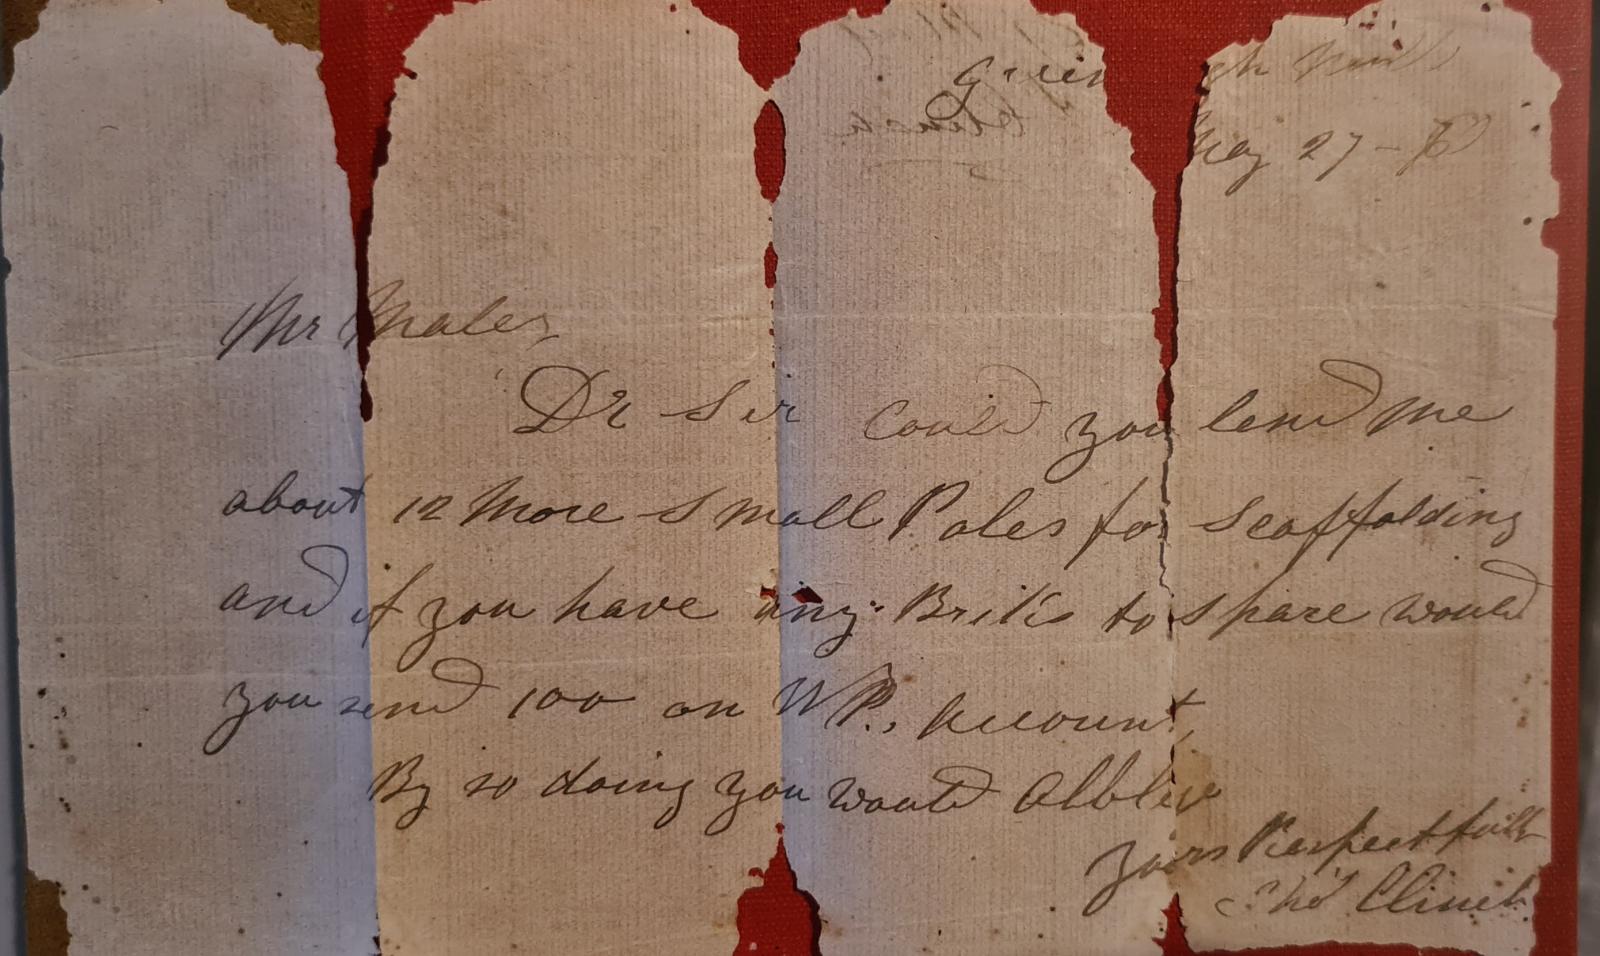 Green
May 27 -
Mr Males,
Dr Sir Could you lend me
about 12 More Small Poles for Scaffolding
and if you have any Briks to spare would
you send 100 on WP., Account,
By so doing you would Obblige
yours Respectfully
Thos Clinch